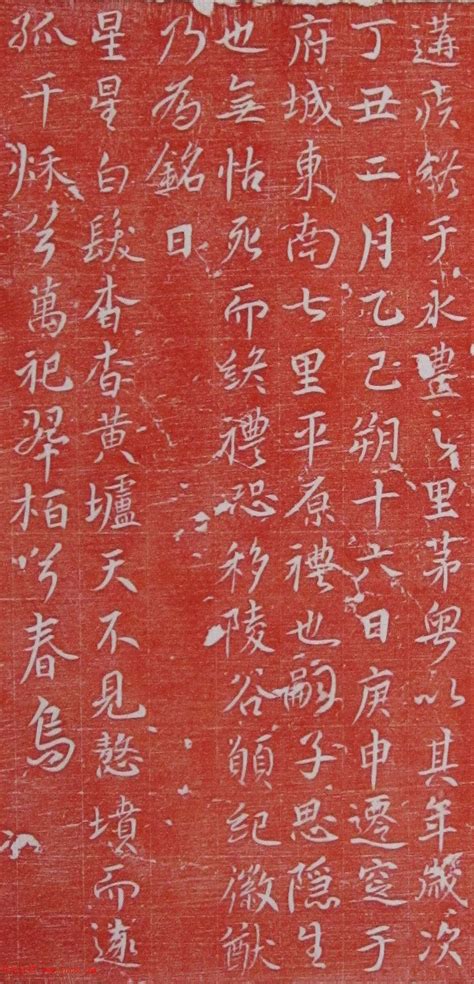 遘疾終于永豐之里苐粤以其年歲次
丁丑二月乙巳朔十六日庚申遷窆于
府城東南七里平原禮也嗣子思隐生
也無怙死而終禮恐移陵谷願紀徽猷
乃為銘曰
星星白髮杳杳黄壚天不見憗墳而遽
孤千秋兮萬祀翠柏兮春烏